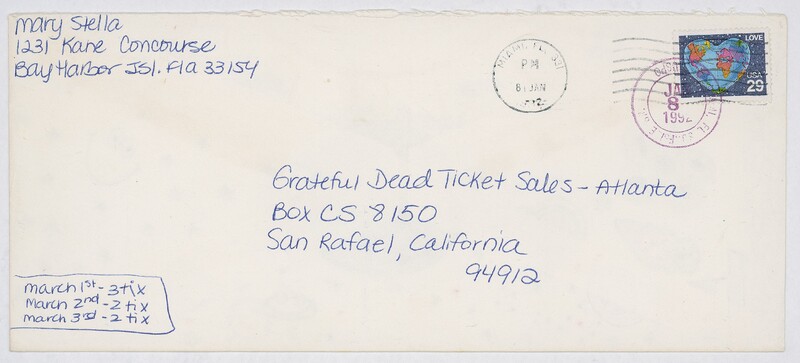 Mary Stella
1231 Kane Concourse
Bay Harbor Isl. Fla 33154
MIAMI, FL 331
PM
8 JAN
LOVE
USA
29
JA
8
1992
Grateful Dead Ticket Sales - Atlanta
Box CS 8150
San Rafael, California
94912
march 1st - 3 tix
March 2nd - 2 tix
march 3rd - 2 tix